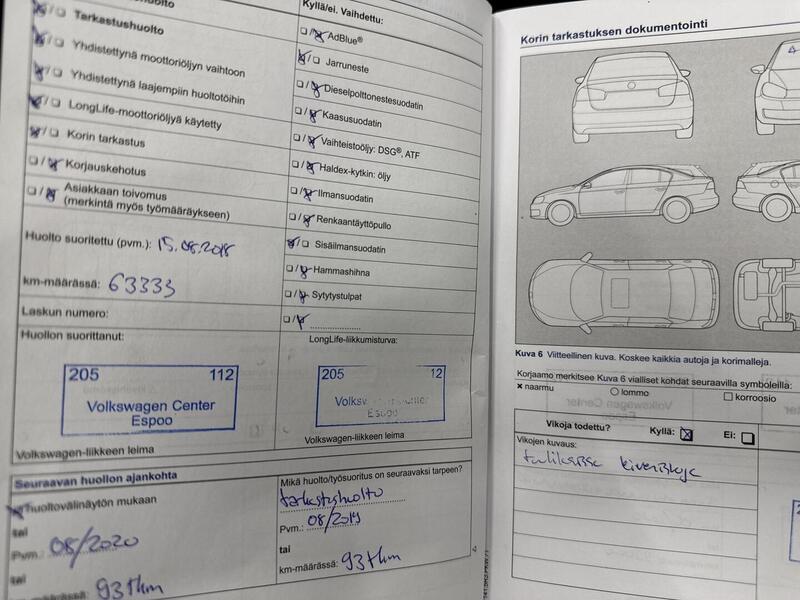 Tarkastushuolto
Yhdistettynä moottoriöljyn vaihtoon
Yhdistettynä laajempiin huoltotöihin
LongLife-moottoriöljyä käytetty
Korin tarkastus
Korjauskehotus
Asiakkaan toivomus
(merkintä myös työmääräykseen)
Huolto suoritettu (pvm.): 15.08.2018
km-määrässä: 63333
Laskun numero:
Huollon suorittanut:
205 112
Volkswagen Center
Espoo
Volkswagen-liikkeen leima
Seuraavan huollon ajankohta
huoltovälinäytön mukaan
tai
Pvm.: 08/2020
tai
km-määrässä: 93tkm
Kyllä/ei. Vaihdettu:
AdBlue®
Jarruneste
Dieselpolttonestesuodatin
Kaasusuodatin
Vaihteistoöljy: DSG®, ATF
Haldex-kytkin: öljy
Ilmansuodatin
Renkaantäyttöpullo
Sisäilmansuodatin
Hammashihna
Sytytystulpat
LongLife-liikkumisturva:
205 12
Volksw
Espoo
Volkswagen-liikkeen leima
Mikä huolto/työsuoritus on seuraavaksi tarpeen?
tarkastushuolto
Pvm.: 08/2019
tai
km-määrässä: 93tkm
Korin tarkastuksen dokumentointi
Kuva 6 Viitteellinen kuva. Koskee kaikkia autoja ja korimalleja.
Korjaamo merkitsee Kuva 6 vialliset kohdat seuraavilla symboleilla:
× naarmu
lommo
korroosio
Vikoja todettu? Kyllä: Ei:
Vikojen kuvaus: